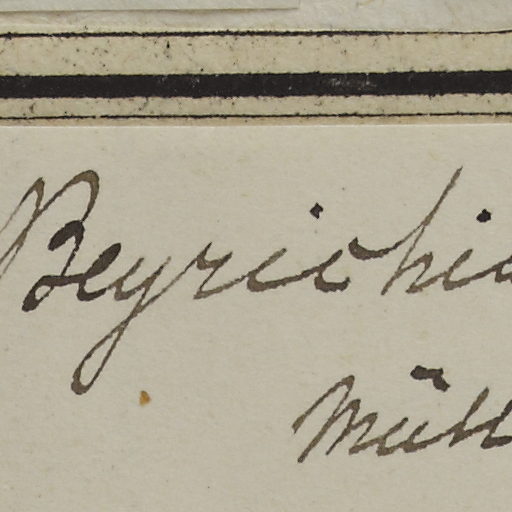 Beyrichia
Müll